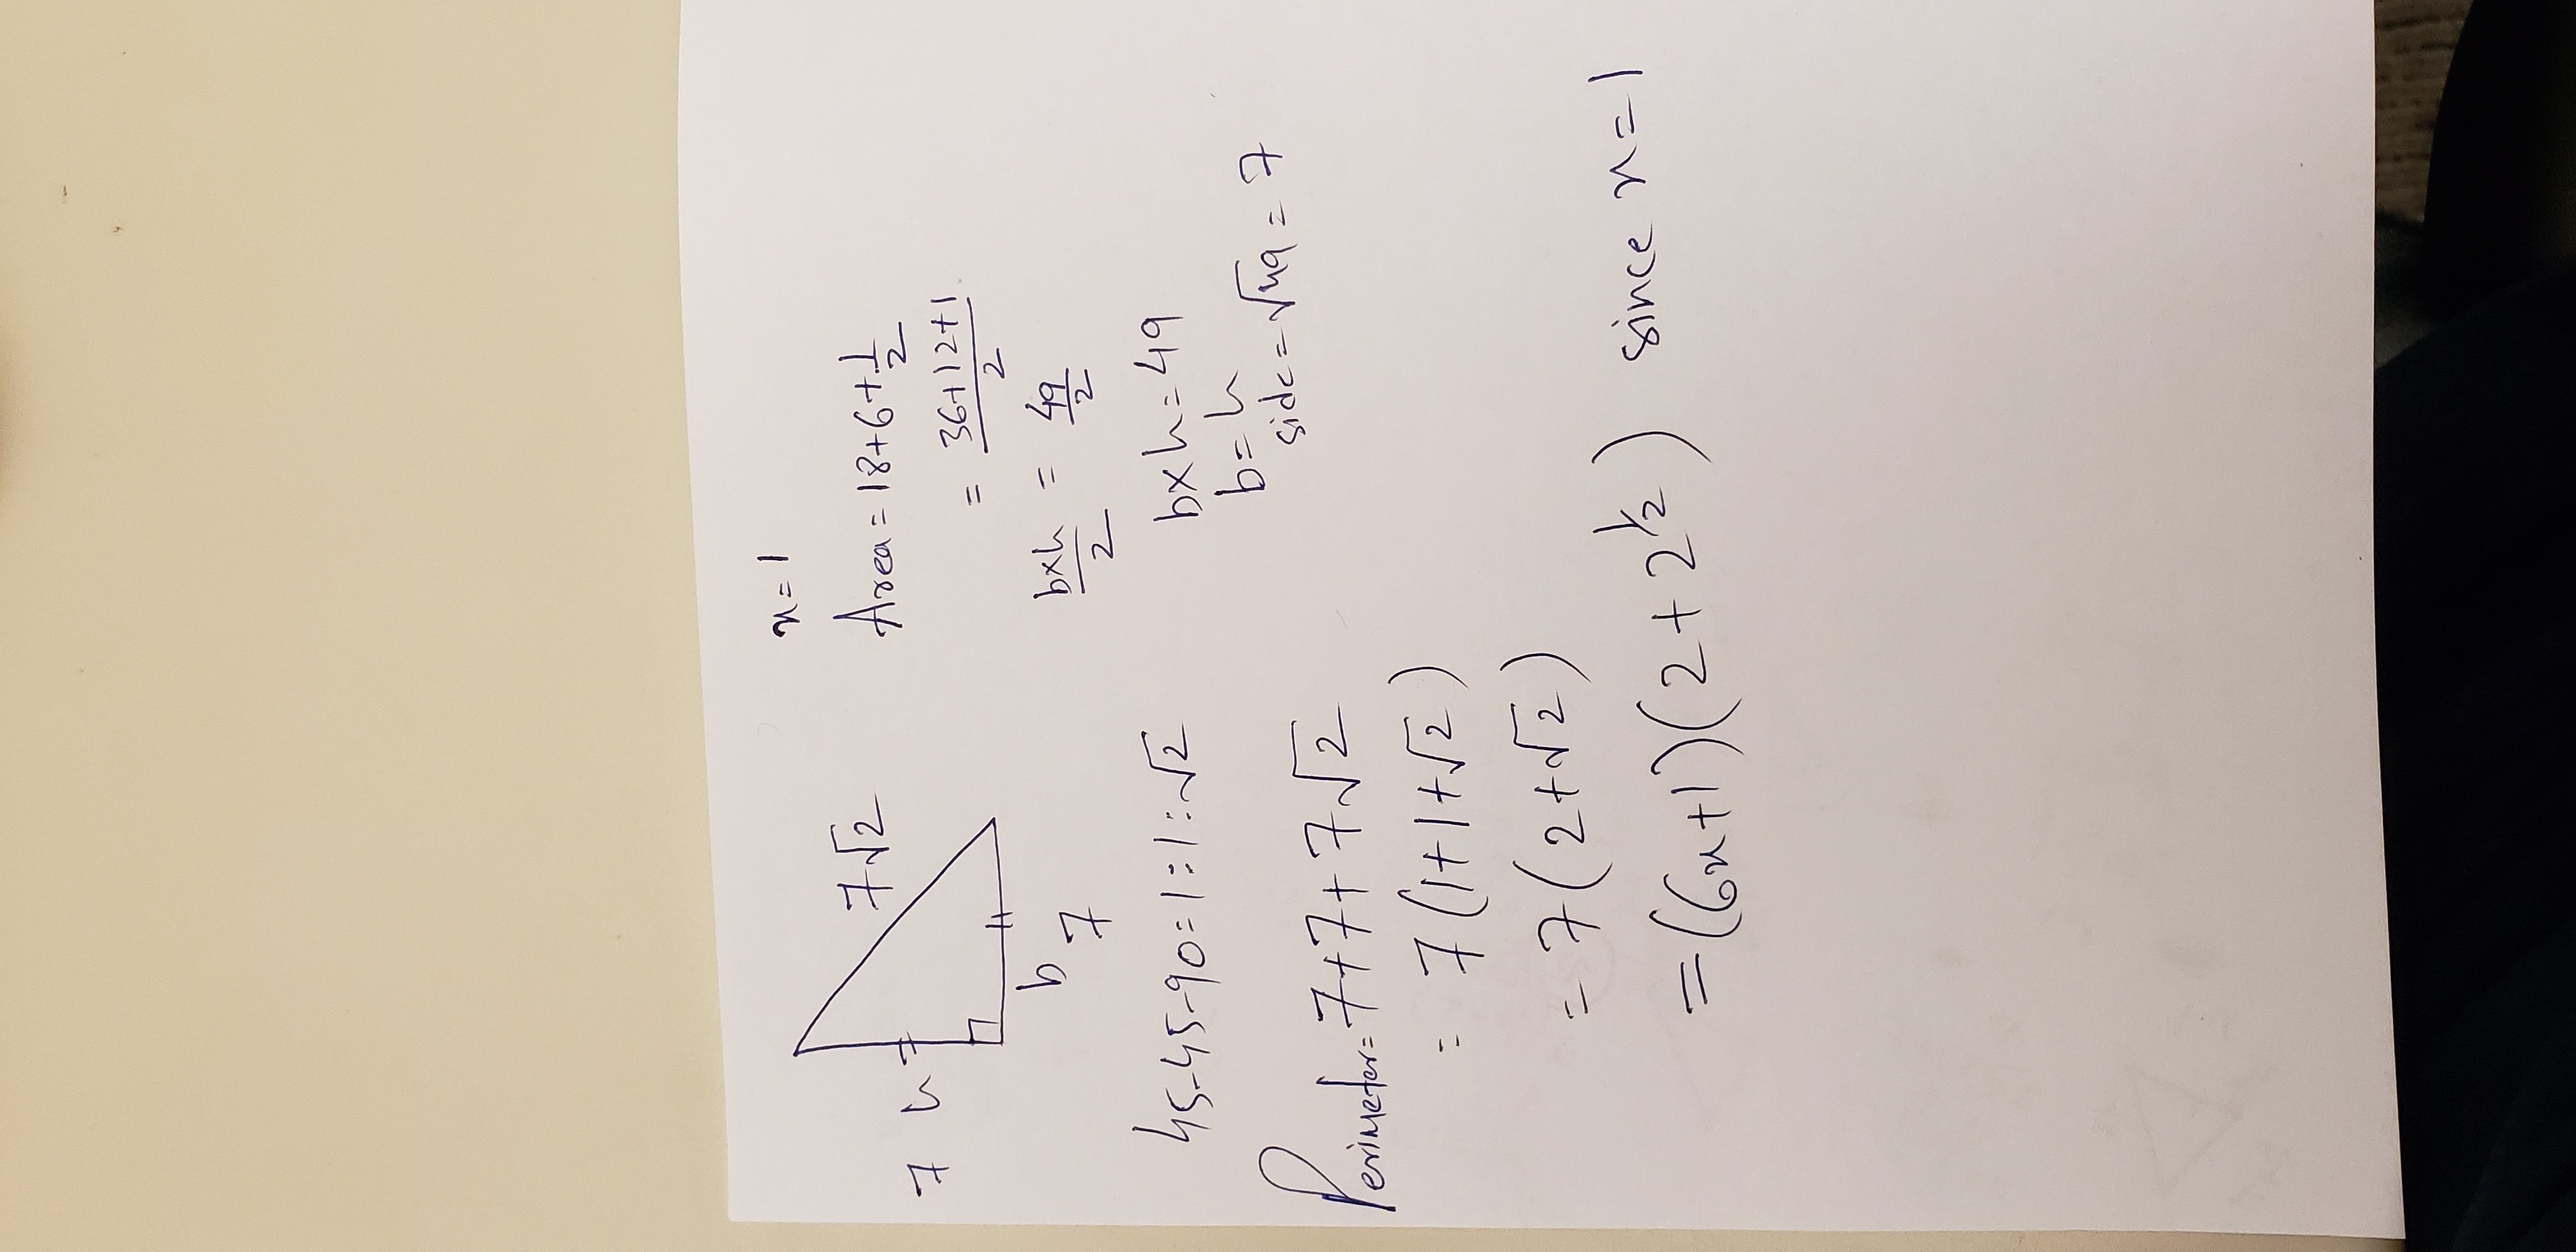 7√2
7 h
b
7
x=1
Area = 18+6+1/2
= 36+12+1/2
b×h/2 = 49/2
b×h=49
b=h
side=√49=7
45-45-90=1:1:√2
Perimeter=7+7+7√2
= 7(1+1+√2)
= 7(2+√2)
=(6x+1)(2+2^1/2) since x=1